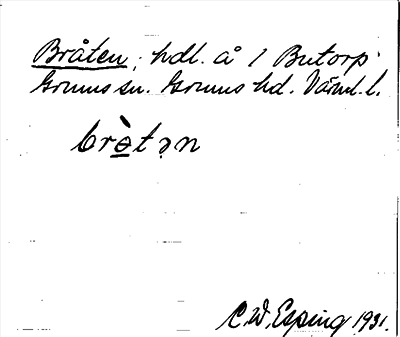 Bråten; hdl. å 1 Butorp
Grums sn. Grums hd. Värml. l.
brə̀tən
C.W. Esping 1931.